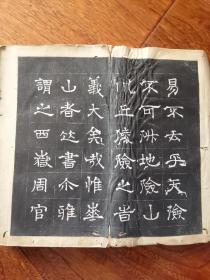 易不云乎天險
不可阩地險山
川丘陵險之旹
義大矣哉惟華
山者書尒雅
謂之西嶽周官